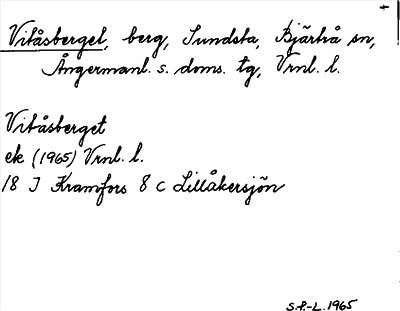 Vitåsberget, berg, Sundsta, Bjärtrå sn,
Ångermanl. s. doms. tg, Vrnl. l.
Vitåsberget
ek (1965) Vrnl. l.
18 J Kramfors 8 c Lillåkersjön
S.P.-L. 1965